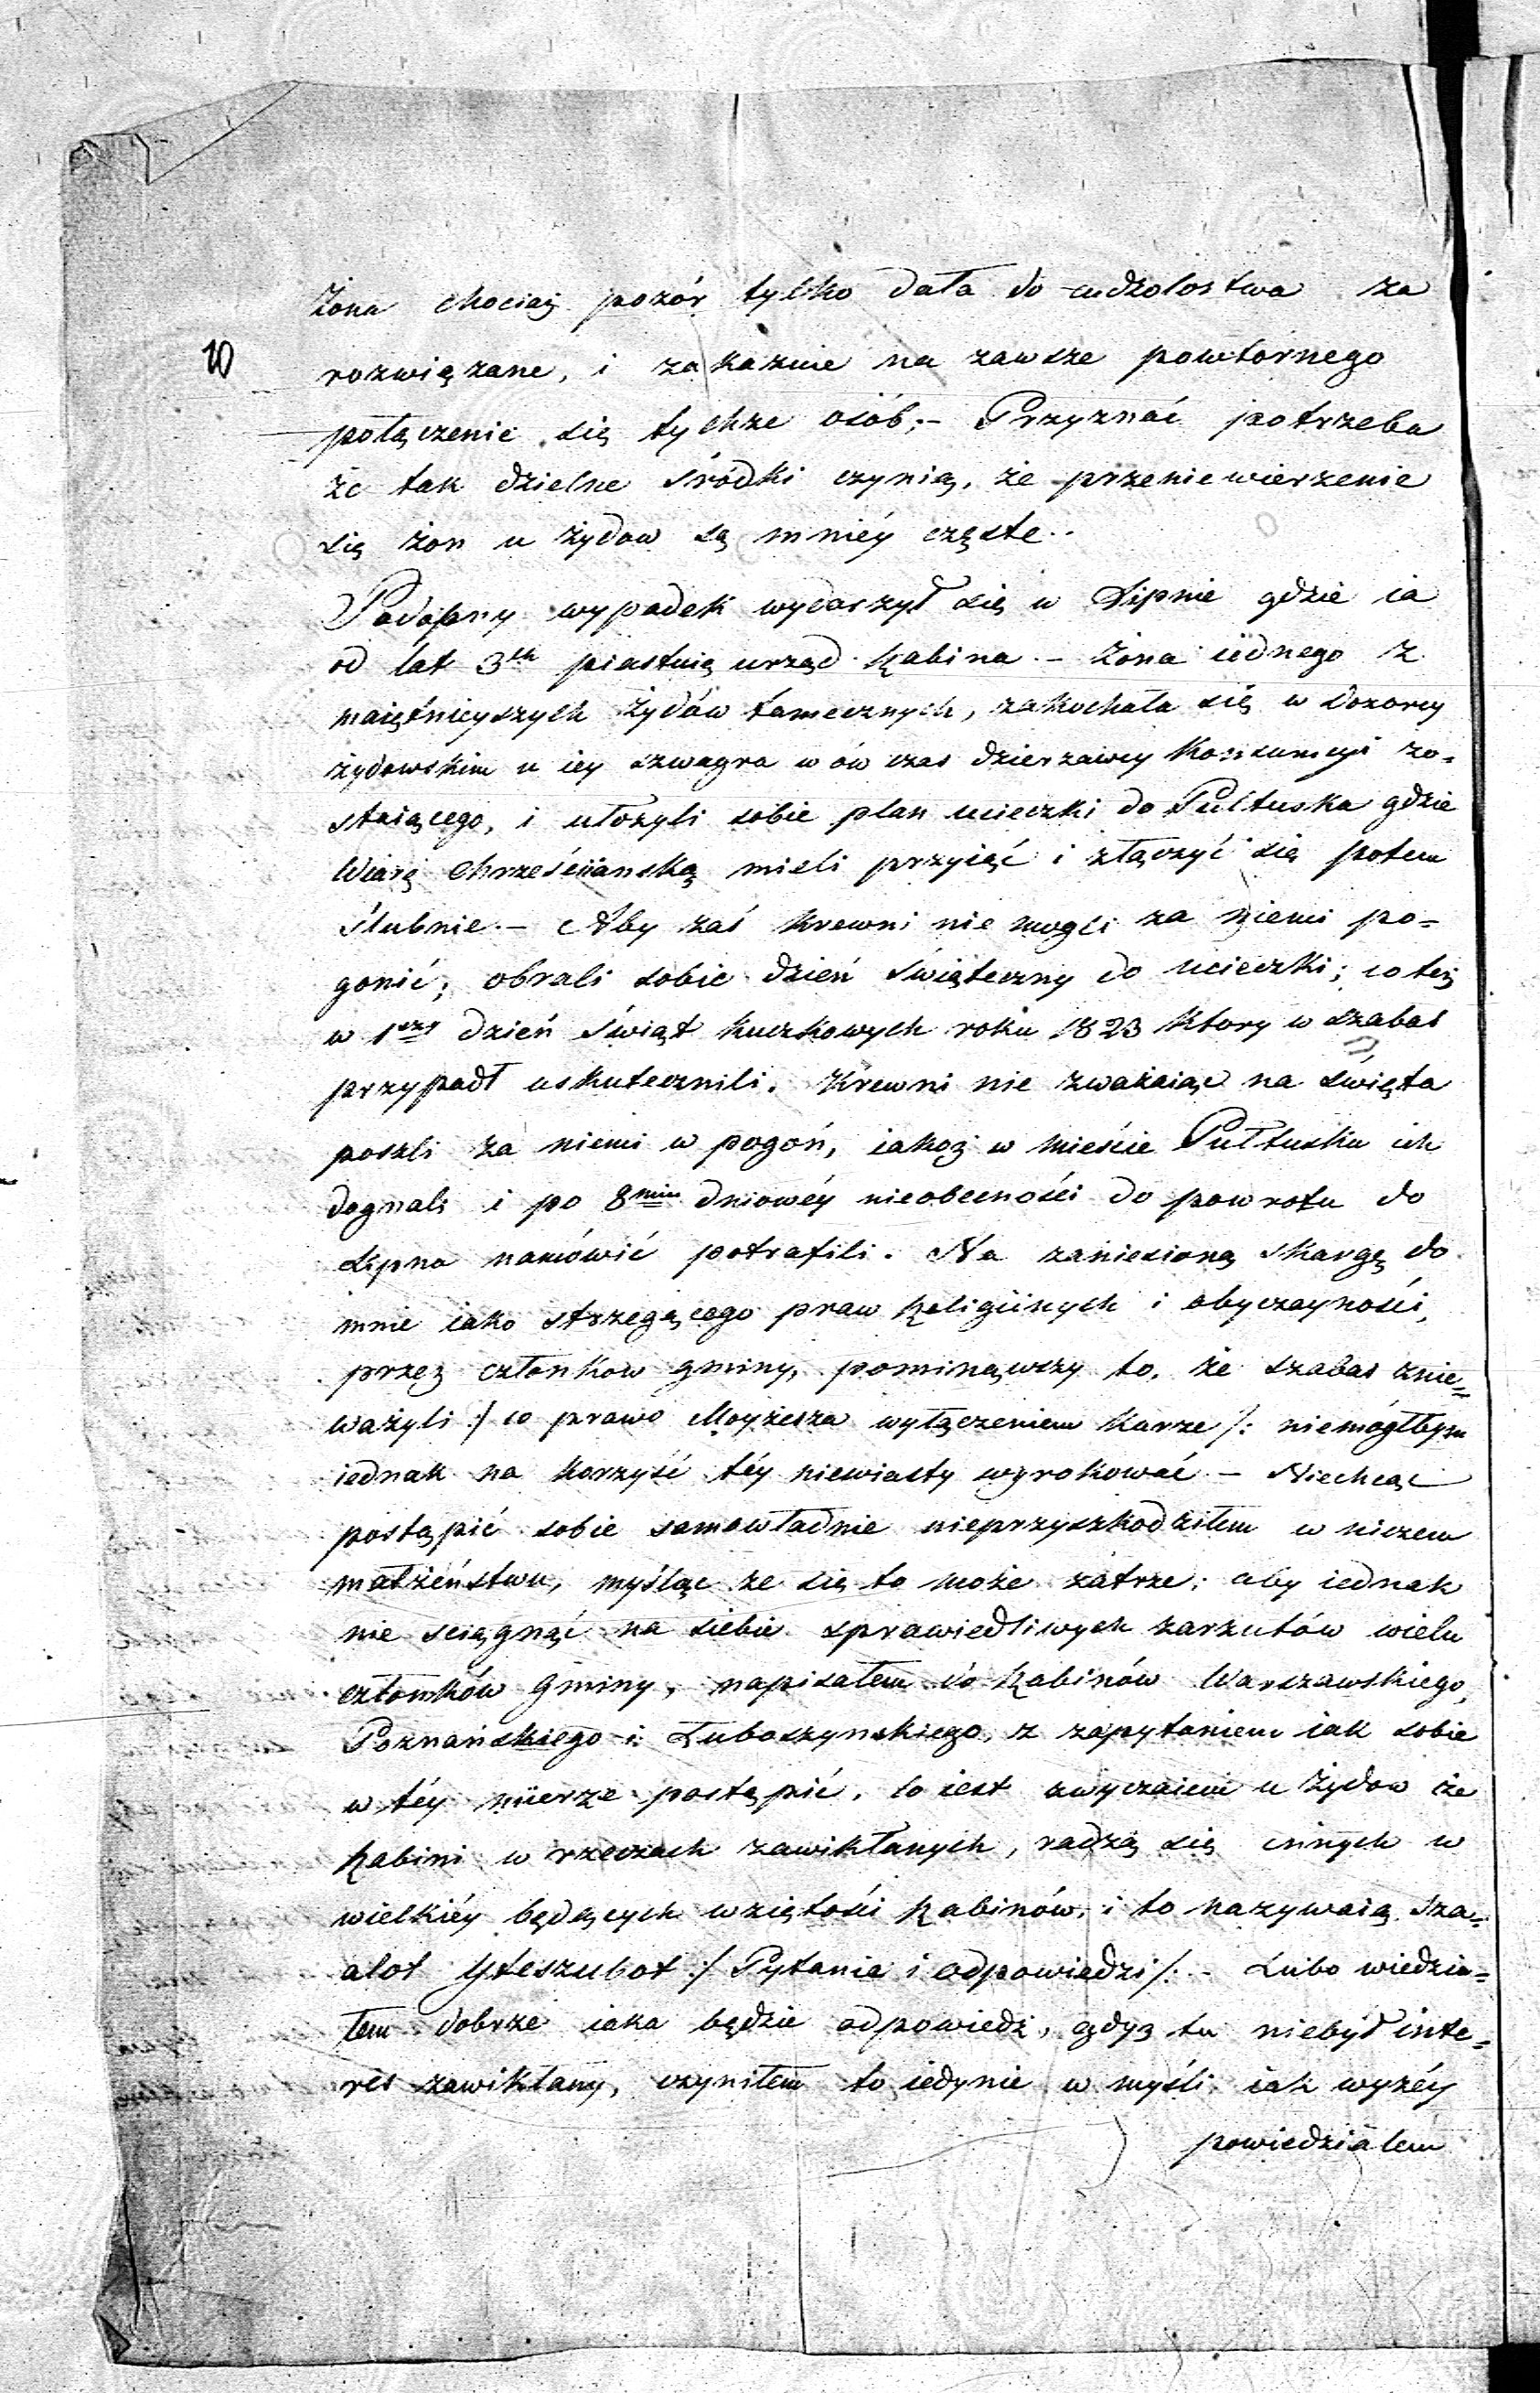 żona chociaż pozór tylko dała do cudzołostwa za
10
rozwiązane, i zakaznie na zawsze powtórnego
połączenie się tychże osób;- Przyznać potrzeba
że tak dzielne śródki czynią, że przeniewierzenie
się żon u żydow są mniéy częste.-
Podobny wypadek wydarzył się w Lipnie gdzie ia
od lat 3ch piastuię urząd Rabina.- Żona iednego z
maiętnieyszych Żydów tamecznych, zakochała się w dozorcy
żydowskim u iey szwagra w ów czas dzierzawcy Konsumcyi zo-
staiącego, i ułożyli sobie plan ucieczki do Pultuska gdzie
Wiarę Chrześciiańską mieli przyiąć i złączyć się potem
ślubnie.- Aby zaś Krewni nie mogli za niemi po-
gonić; obrali sobie dzień świąteczny do ucieczki; co też
w 1szy dzień świąt kuczkowych roku 1823 ktory w szabas
przypadł uskutecznili. Krewni nie zważaiąc na święta
poszli za niemi w pogoń, iakoż w mieście Pułtusku ich
dognali i po 8mio dniowéy nieobecności do powrotu do
Lipna namówić potrafili. Na zaniesioną skargę do
mnie iako strzegącego praw Religiinych i obyczayności,
przez członkow gminy, pominąwszy to, że szabas znie=
ważyli :/ co prawo Moyżesza wyłączeniem karze /: niemógłbym
iednak na korzyść téy niewiasty wyrokować - Niechcąc
postąpić sobie samowładnie nieprzyszkodziłem w niczem
małżeństwu, myśląc że się to może zatrze; aby iednak
nie sciągnąć na siebie sprawiedliwych zarzutów wielu
członków Gminy, napisałem do Rabinów Warszawskiego,
Poznańskiego i Luboszynskiego, z zapytaniem iak sobie
w téy mierze postąpić, to iest zwyczaiem u Żydow że
Rabini w rzeczach zawikłanych, radzą się innych w
wielkiéy będących wziętości Rabinów, i to nazywaią Sza=
alot Yteszubot :/ Pytania i odpowiedzi /:- Lubo wiedzia=
łem dobrze iaka będzie odpowiedź, gdyż tu niebył inte=
res zawikłany, czyniłem to iedynie w myśli iak wyżéy
powiedziałem